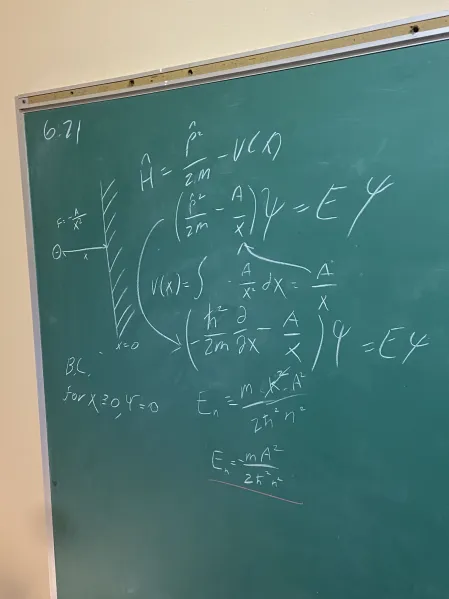 6.21
Ĥ = p̂²/2m - V(x)
F = -A/x²
(p̂²/2m - A/x)ψ = Eψ
x
V(x) = ∫ -A/x² dx = A/x
x=0
(-ħ²/2m ∂/∂x - A/x)ψ = Eψ
B.C.
For x≥0, ψ=0
Eₙ =
2ħ²n²
Eₙ = -mA²/2ħ²n²